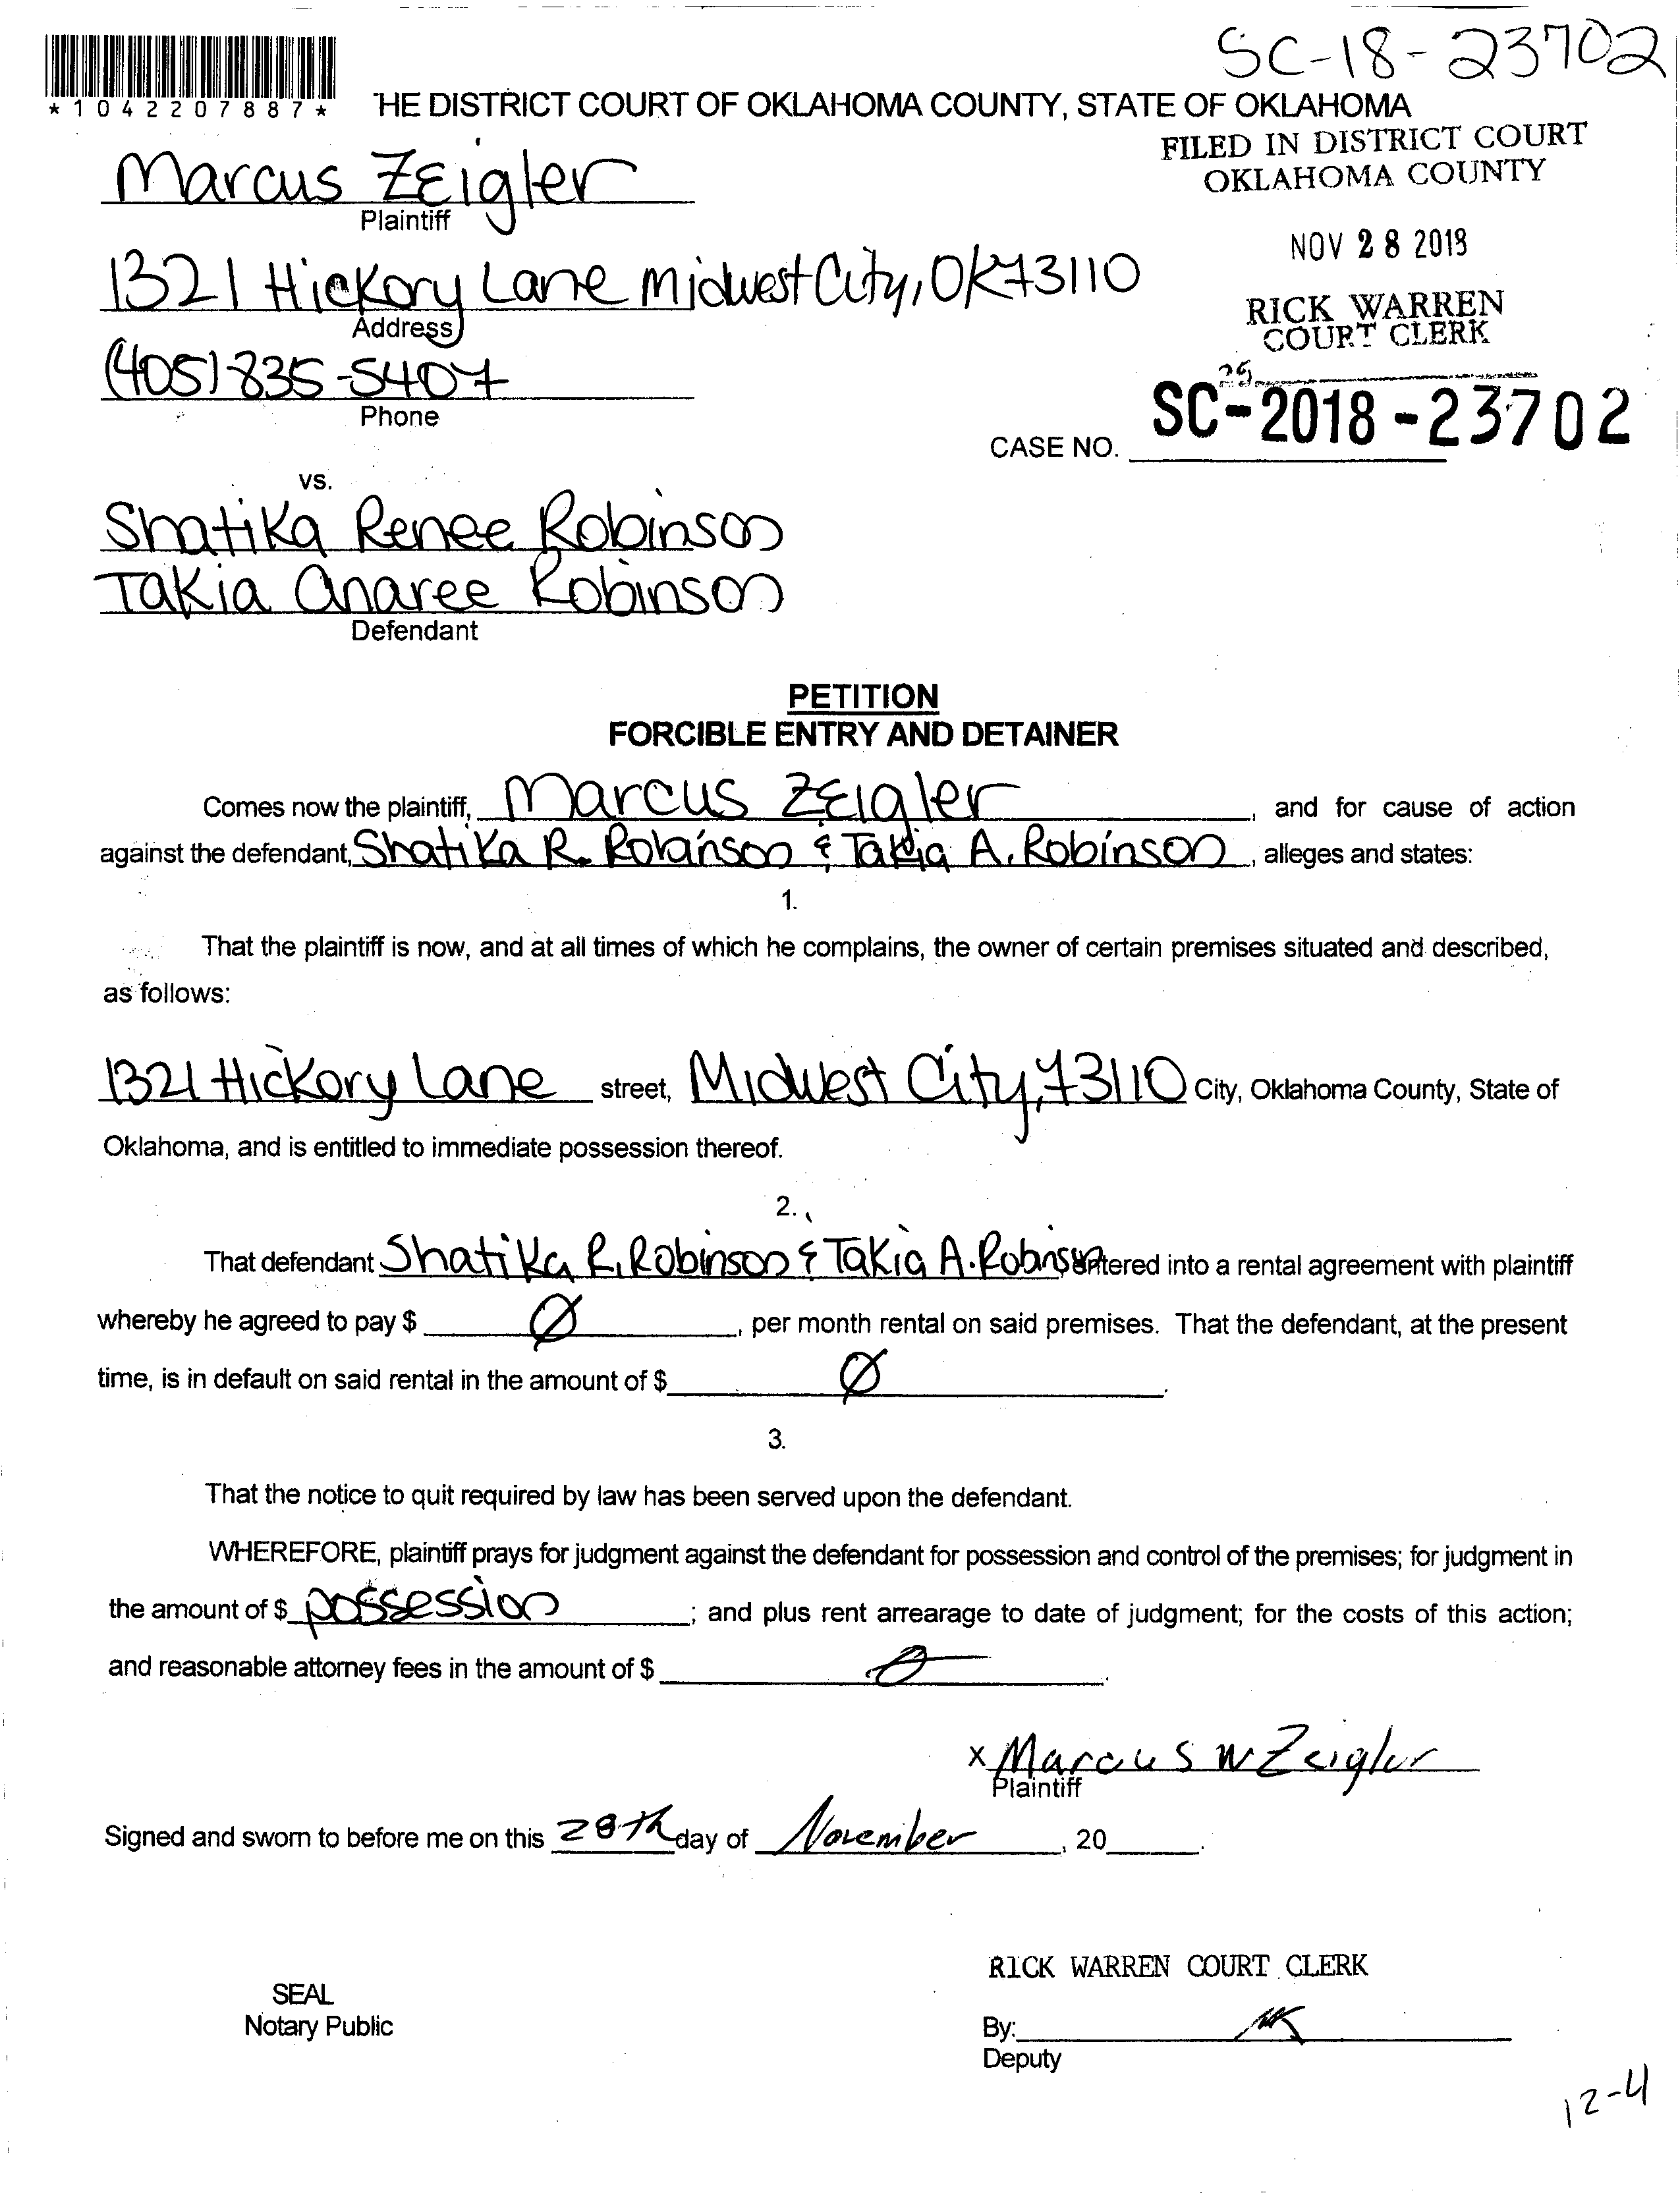 SC-18-23702
*1042207887*
HE DISTRICT COURT OF OKLAHOMA COUNTY, STATE OF OKLAHOMA
FILED IN DISTRICT COURT
OKLAHOMA COUNTY
Marcus Zeigler
Plaintiff
NOV 28 2018
1321 Hickory Lane Midwest City, OK 73110
Address
RICK WARREN
COURT CLERK
(405) 835-5407
Phone
25
CASE NO. SC-2018-23702
vs.
Shatika Renee Robinson
Takia Anaree Robinson
Defendant
PETITION
FORCIBLE ENTRY AND DETAINER
Comes now the plaintiff, Marcus Zeigler, and for cause of action
against the defendant, Shatika R. Robinson & Takia A. Robinson, alleges and states:
1.
That the plaintiff is now, and at all times of which he complains, the owner of certain premises situated and described,
as follows:
1321 Hickory Lane street, Midwest City, 73110 City, Oklahoma County, State of
Oklahoma, and is entitled to immediate possession thereof.
2.
That defendant Shatika R. Robinson & Takia A. Robinson entered into a rental agreement with plaintiff
whereby he agreed to pay $ Ø, per month rental on said premises. That the defendant, at the present
time, is in default on said rental in the amount of $ Ø.
3.
That the notice to quit required by law has been served upon the defendant.
WHEREFORE, plaintiff prays for judgment against the defendant for possession and control of the premises; for judgment in
the amount of $ possession; and plus rent arrearage to date of judgment; for the costs of this action;
and reasonable attorney fees in the amount of $ Ø.
x Marcus W Zeigler
Plaintiff
Signed and sworn to before me on this 28th day of November, 20___.
RICK WARREN COURT CLERK
SEAL
Notary Public
By:
Deputy
12-4